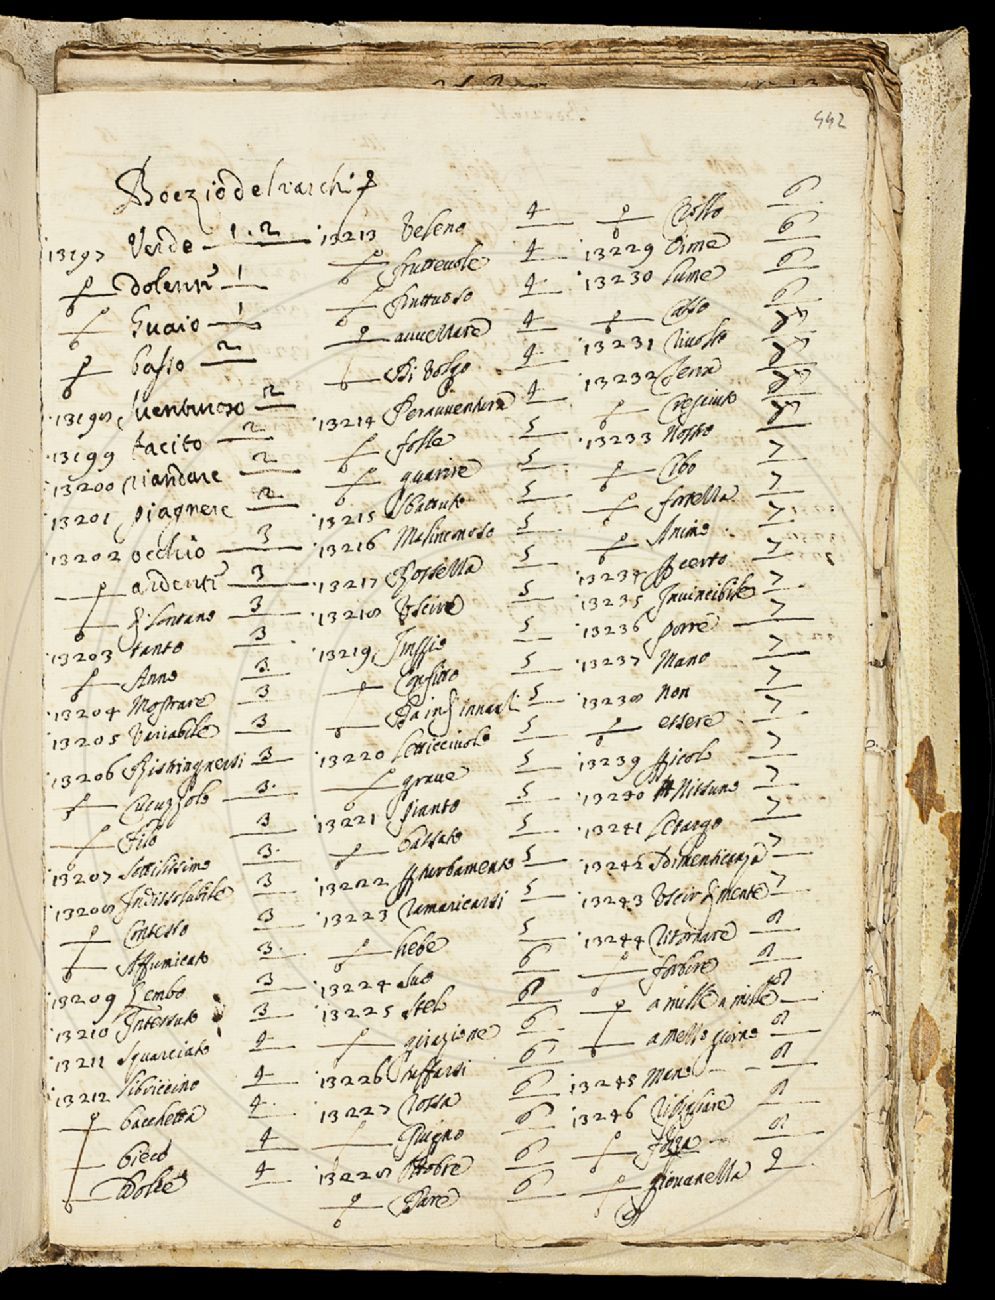 442
Boezio del Varchi
13197 Verde 1. 2
dolenti 1
Guaio 1
basso 2
13198 Sventuroso 2
13199 tacito 2
13200 riandare 2
13201 piagnere 2
13202 occhio 3
ardenti 3
Di lontano 3
13203 tanto 3
Anno 3
13204 Mostrare 3
13205 Variabile 3
13206 Ristringnersi 3
Cucuzzolo 3
Filo 3
13207 Sottilissimo 3
13208 Indissolubile 3
Contesto 3
Affumicato 3
13209 Lembo 3
13210 Intessuto 3
13211 Squarciato 4
13212 libriccino 4
bacchetta 4
bieco 4
Dolce 4
13213 Veleno 4
fruttevole 4
Fruttuoso 4
avvellare 4
Di Volgo 4
13214 Peravventura 4
folle 5
guarire 5
13215 Sbattuto 5
13216 Malinconoso 5
13217 Rossella 5
13218 Uscire 5
13219 Inffio 5
Confitto 5
13220 letticciuolo 5
grave 5
13221 pianto 5
balzato 5
13222 Sturbamento 5
13223 Ramaricarsi 5
hebe 5
13224 Suo 6
13225 Stelo 6
girazione 6
13226 tuffarsi 6
13227 Rossa 6
Giugno 6
13228 Ottobre 6
Dare 6
Collo 6
13229 Oime 6
13230 lume 6
Casso 6
13231 Rivolto 7
13232 Terra 7
Cresciuto 7
13233 Nostro 7
Cibo 7
fortella 7
Animo 7
13234 Certo 7
13235 Invincibile 7
13236 porre 7
13237 Mano 7
13238 non 7
essere 7
13239 Picolo 7
13240 Nissuno 7
13241 Letargo 7
13242 Dimenticanza 7
13243 Uscir di mente 7
13244 Ritornare 8
forbire 8
a mille a mille 8
a mezzo giorno 8
13245 Mano 8
13246 Ripigliare 8
forza 8
giovanella 9